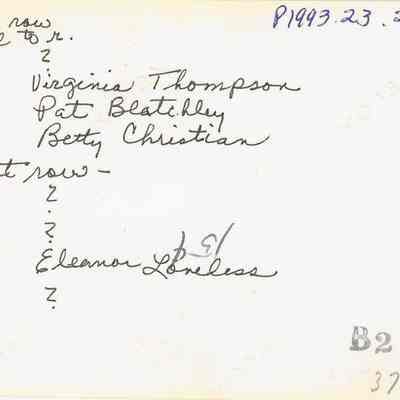 row P1993.23.2
l to r.
?
Virginia Thompson
Pat Blatchley
Betty Christian
t row -
?
?
Eleanor Loveless
?
B2
37